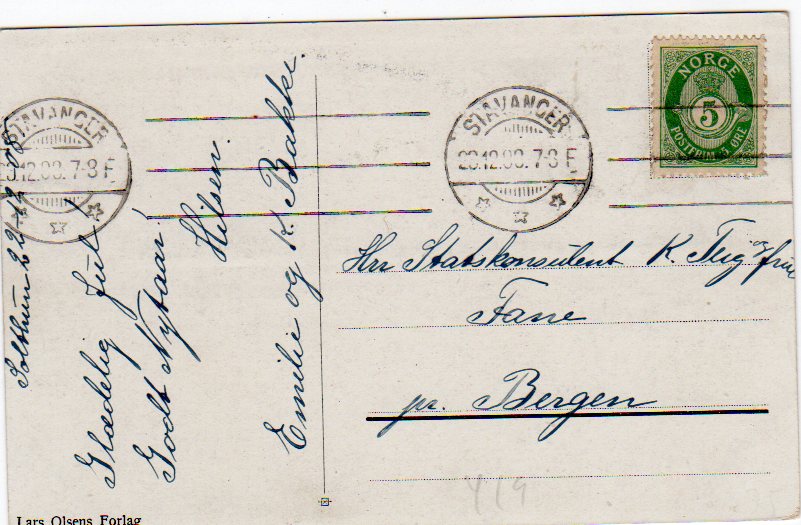 Solthun 22-12-08
Glædelig Jul!
Godt Nytaar!
Hilsen.
Emilie og K. Bakke.
STAVANGER
23.12.08. 7-8 F
STAVANGER
23.12.08. 7-8 F
NORGE
5
POSTFRIM. 5 ØRE
Hrr Statskonsulent K. Tiig og frue
Fane
pr. Bergen
419
Lars Olsens Forlag